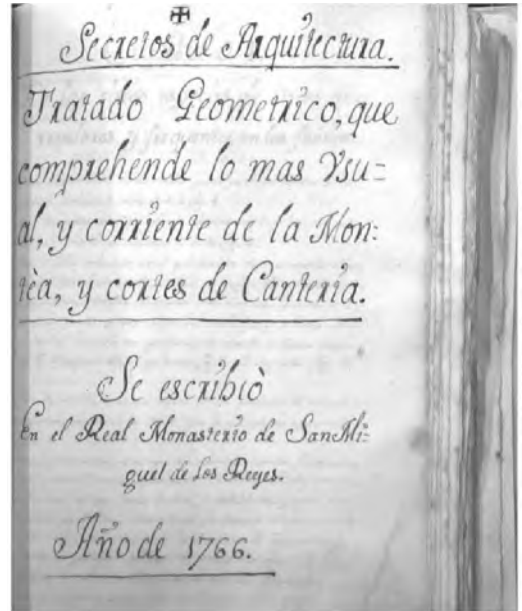 ✠
Secretos de Arquitectura.
Tratado Geometrico, que
comprehende lo mas Ysu=
al, y corriente de la Mon:
tèa, y cortes de Canteria.
Se escribiò
En el Real Monasterio de San Mi=
guel de los Reyes.
Año de 1766.